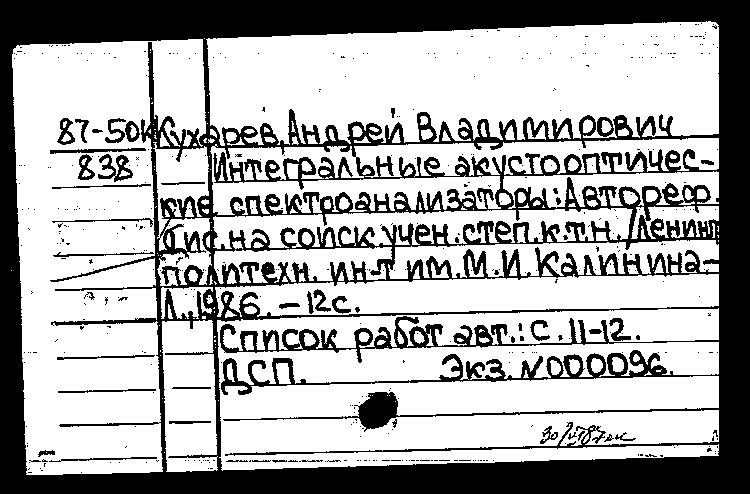 87-50к Кухарев, Андрей Владимирович
838 Интегральные акустооптичес-
кие спектроанализаторы: Автореф.
дис. на соиск. учен. степ. к.т.н. / Ленингр
политехн. ин-т им. М.И. Калинина-
Л., 1986. – 12 с.
Список работ авт.: с. 11-12.
ДСП. Экз. №000096.